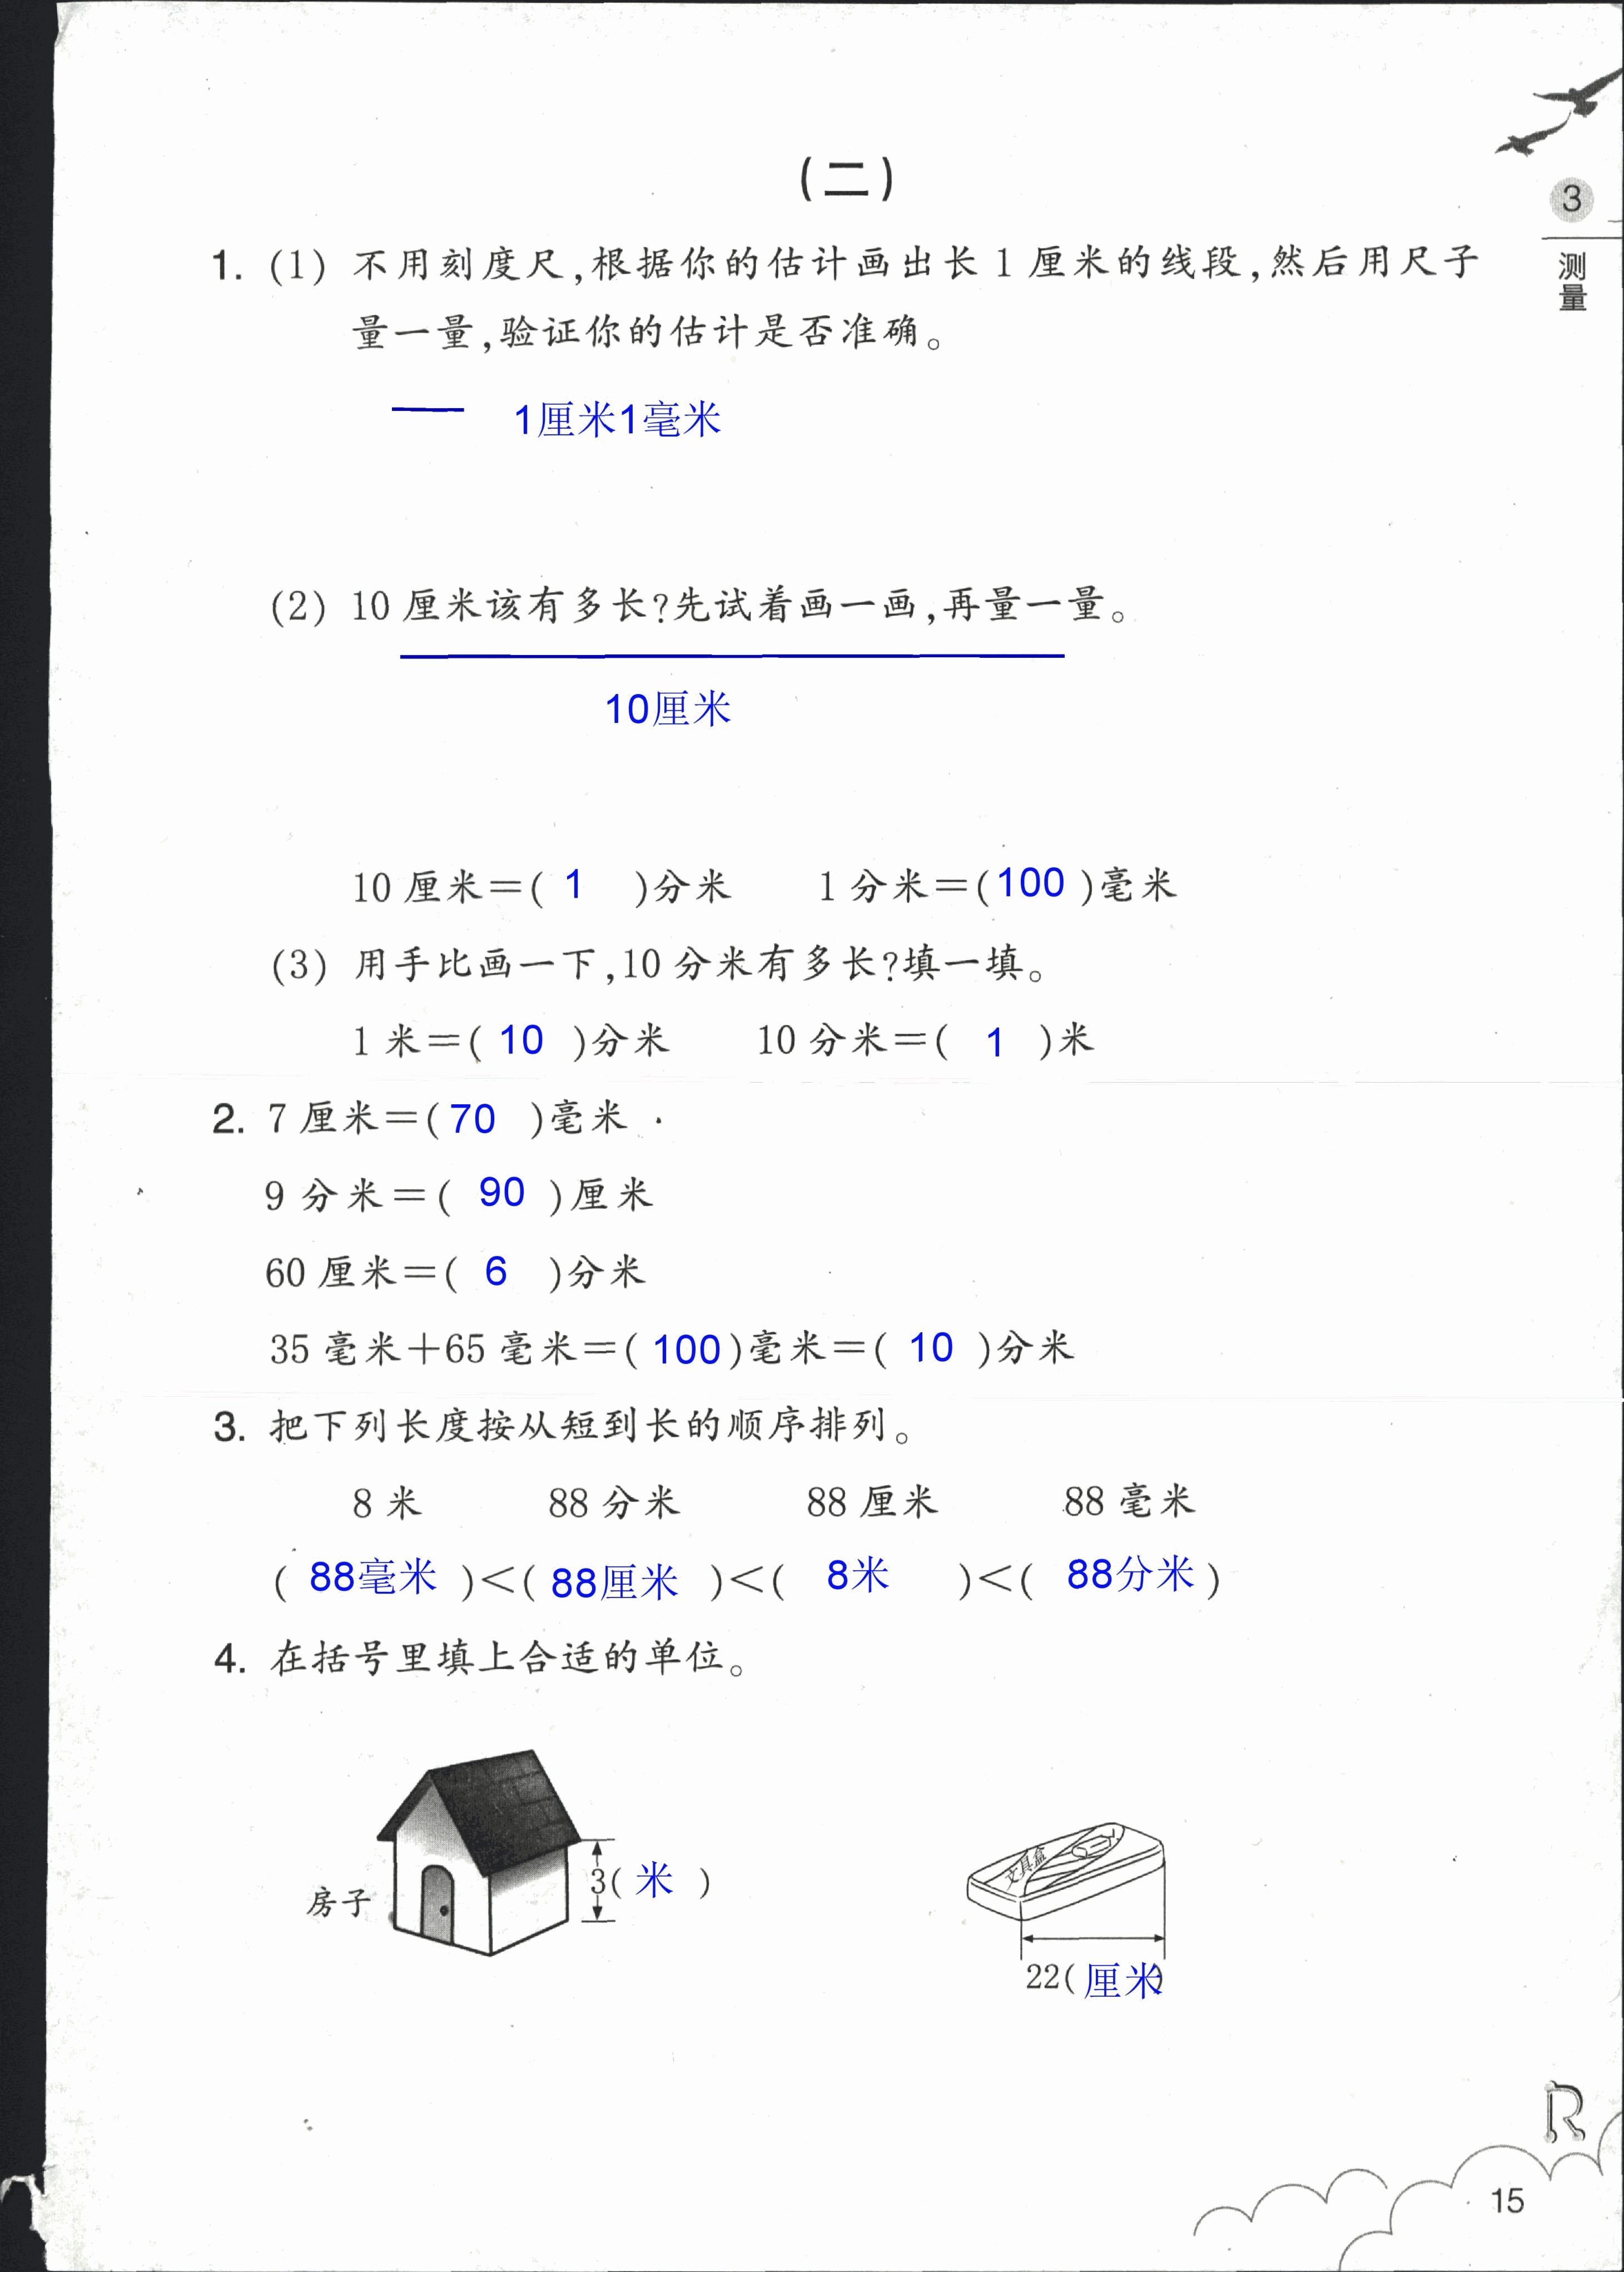 (二)
3
测量
1. (1) 不用刻度尺,根据你的估计画出长1厘米的线段,然后用尺子
量一量,验证你的估计是否准确。
1厘米1毫米
(2) 10厘米该有多长?先试着画一画,再量一量。
10厘米
10厘米=( 1 )分米 1分米=(100)毫米
(3) 用手比画一下,10分米有多长?填一填。
1米=( 10 )分米 10分米=( 1 )米
2. 7厘米=(70 )毫米
9分米=( 90 )厘米
60厘米=( 6 )分米
35毫米+65毫米=( 100)毫米=( 10 )分米
3. 把下列长度按从短到长的顺序排列。
8米 88分米 88厘米 88毫米
( 88毫米 )<( 88厘米 )<( 8米 )<( 88分米 )
4. 在括号里填上合适的单位。
房子
3( 米 )
文具盒
22( 厘米)
R
15